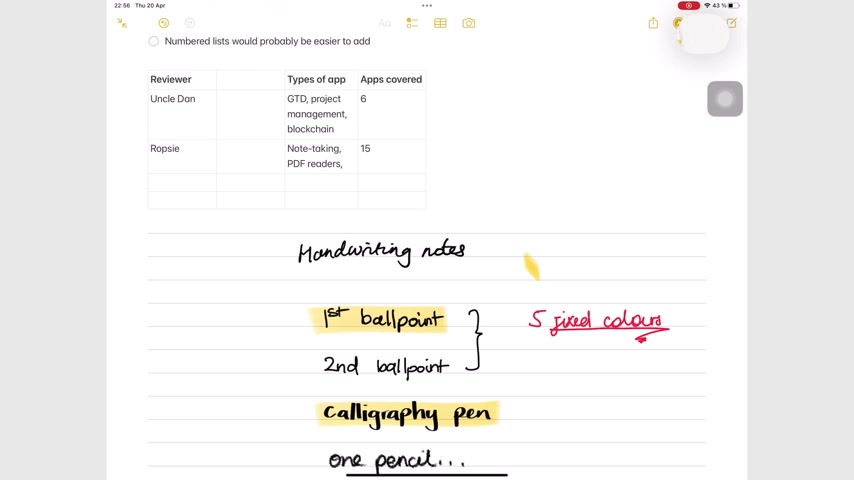 22:56 Thu 20 Apr
43 %
Aa
Numbered lists would probably be easier to add
Reviewer Types of app Apps covered
Uncle Dan GTD, project 6
management,
blockchain
Ropsie Note-taking, 15
PDF readers,
Handwriting notes
1st ballpoint
5 fixed colours
2nd ballpoint
Calligraphy pen
one pencil...